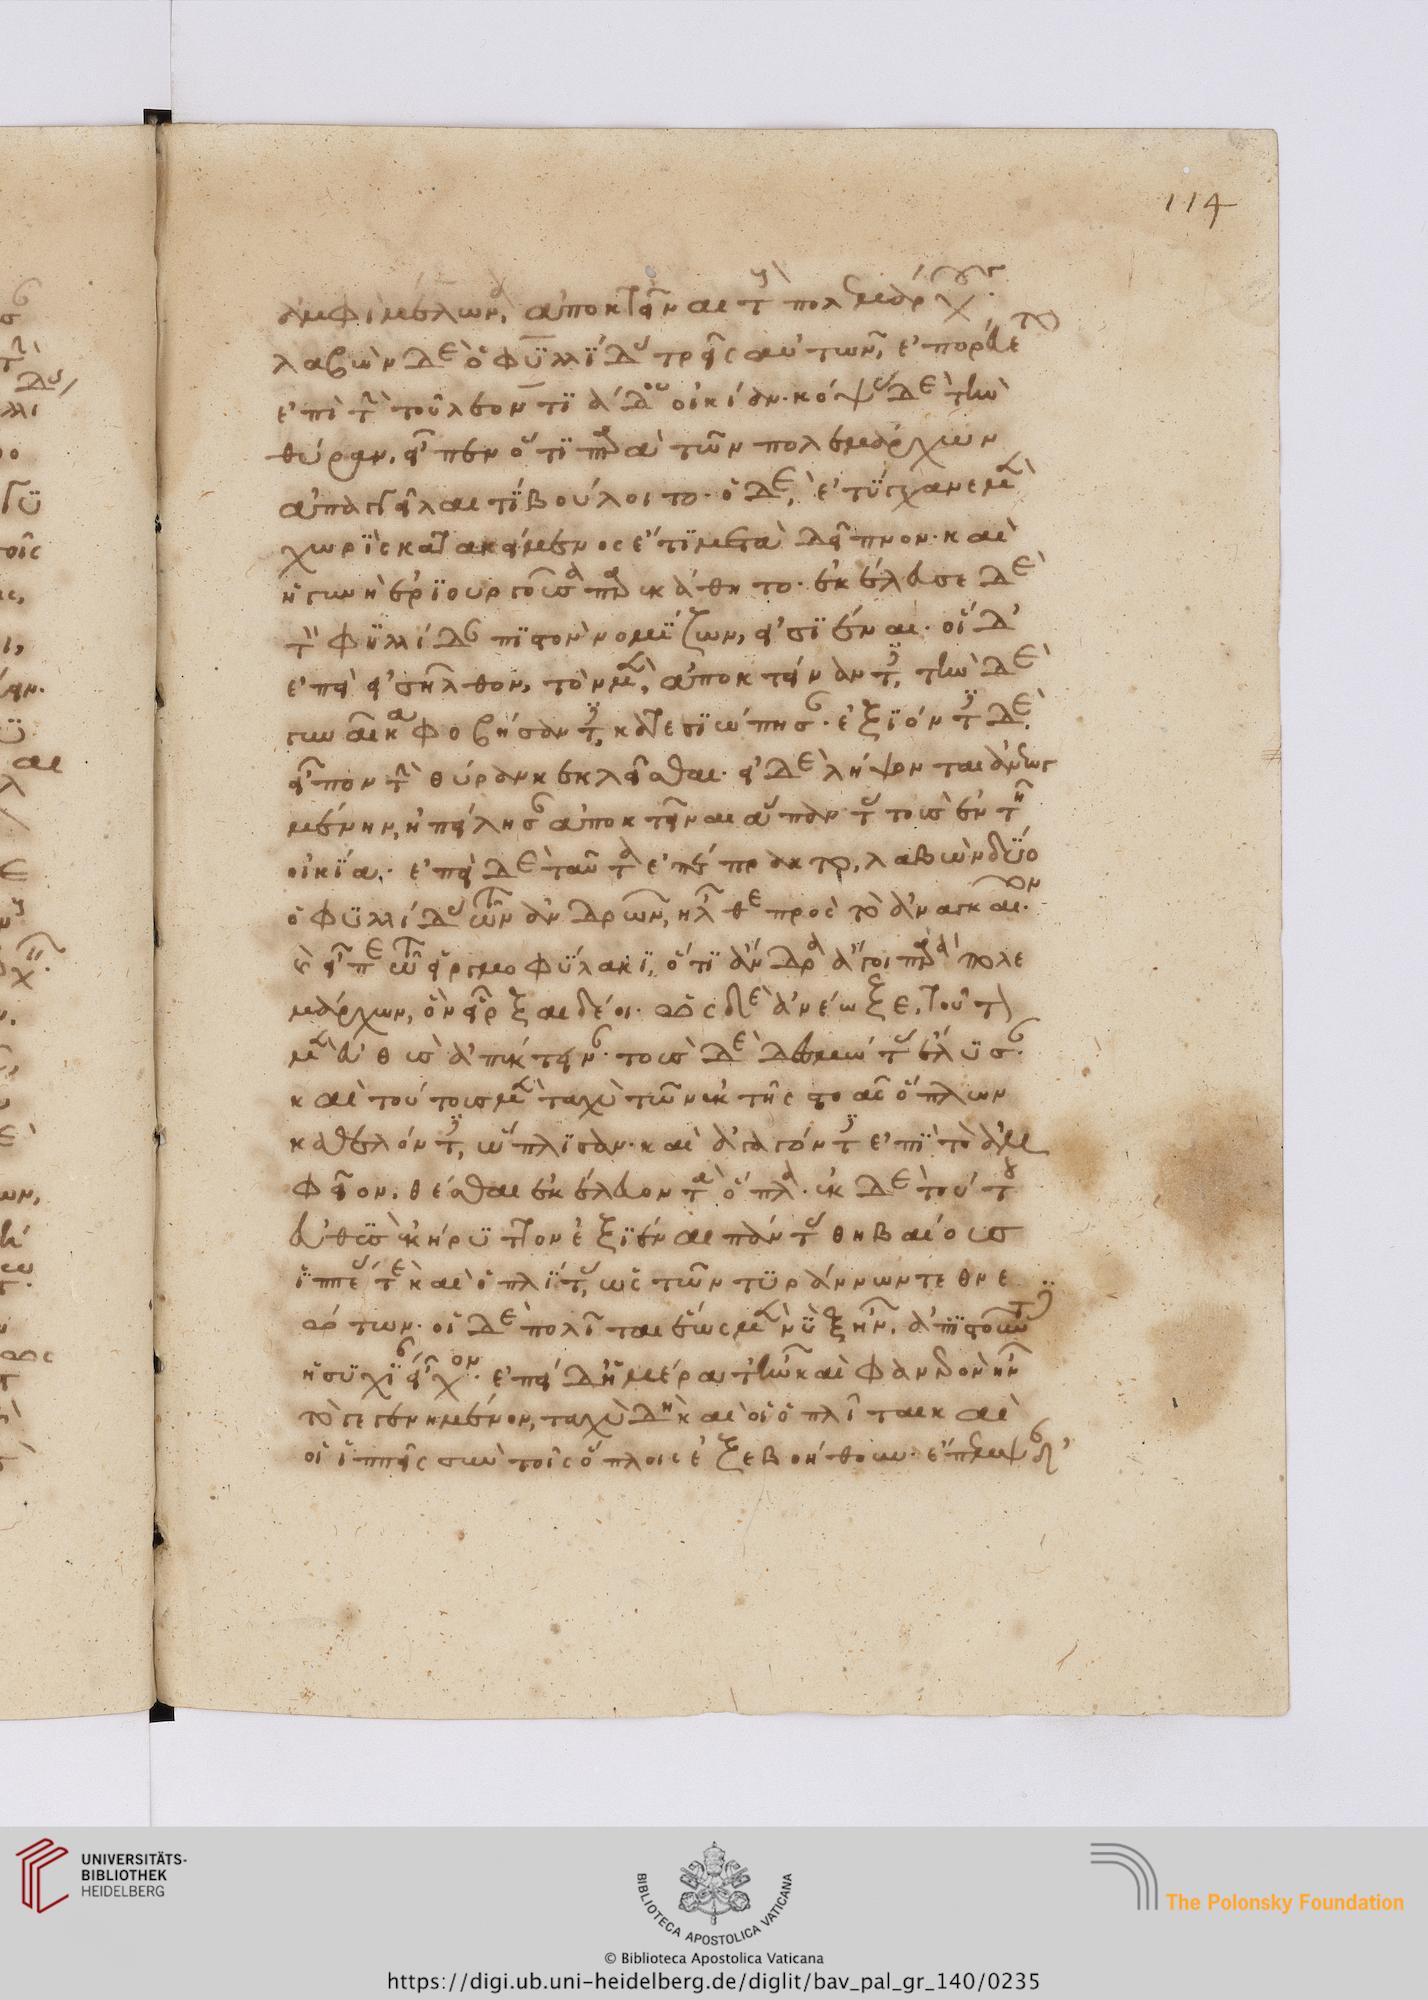 ἀμφὶ μέλωνα, ἀποκτεῖναι τοὺς πολεμάρχους·
λαβὼν δὲ ὁ φυλλίδας τρεῖς αὐτῶν, ἐπορεύετο
ἐπὶ τὴν τοῦ λεοντιάδου οἰκίαν· κόψας δὲ τὴν
θύραν, εἶπεν ὅτι παρὰ τῶν πολεμάρχων
ἀπαγγεῖλαι τί βούλοιτο· ὁ δὲ, ἐτύγχανε μὲν
χωρὶς κατακείμενος ἔτι μετὰ δεῖπνον· καὶ
ἡ γυνὴ ἐριουργοῦσα παρεκάθητο· ἐκέλευσε δὲ
τὸν φυλλίδαν πιστὸν νομίζων, εἰσιέναι· οἱ δ'
ἐπεὶ εἰσῆλθον, τὸν μὲν, ἀποκτείναντες, τὴν δὲ
γυναῖκα φοβήσαντες, κατεσιώπησαν· ἐξιόντες δὲ,
εἶπον τὴν θύραν κεκλεῖσθαι· εἰ δὲ λήψονται ἀνεῳγ
μένην, ἠπείλησαν ἀποκτεῖναι ἅπαντας τοὺς ἐν τῇ
οἰκίᾳ· ἐπεὶ δὲ ταῦτα ἐπέπρακτο, λαβὼν δύο
ὁ φυλλίδας τῶν ἀνδρῶν, ἦλθε πρὸς τὸ ἀναγκαῖον·
καὶ εἶπε τῷ εἱργμοφύλακι, ὅτι ἄνδρα ἄγοι παρὰ πολε
μάρχων, ὃν εἶρξαι δέοι· ὡς δὲ ἀνέῳξε, τοῦτον
μὲν εὐθὺς ἀπέκτειναν· τοὺς δὲ δεσμώτας ἔλυσαν·
καὶ τούτους μὲν ταχὺ τῶν ἐκ τῆς στοᾶς ὅπλων
καθελόντες, ὥπλισαν· καὶ ἀγαγόντες ἐπὶ τὸ ἀμ
φεῖον, θέσθαι ἐκέλευον τὰ ὅπλα· ἐκ δὲ τούτου
εὐθὺς ἐκήρυττον ἐξιέναι πάντας θηβαίους
ἱππέας τε καὶ ὁπλίτας, ὡς τῶν τυράννων τεθνε
ώτων· οἱ δὲ πολῖται ἕως μὲν νὺξ ἦν, ἀπιστοῦντες
ἡσυχίαν εἶχον· ἐπεὶ δ' ἡμέρα τ' ἦν καὶ φανερὸν ἦν
τὸ γεγενημένον, ταχὺ δὴ καὶ οἱ ὁπλῖται καὶ
οἱ ἱππεῖς σὺν τοῖς ὅπλοις ἐξεβοήθουν· ἔπεμψαν δ'
114
UNIVERSITÄTS-
BIBLIOTHEK
HEIDELBERG
BIBLIOTECA APOSTOLICA VATICANA
The Polonsky Foundation
© Biblioteca Apostolica Vaticana
https://digi.ub.uni-heidelberg.de/diglit/bav_pal_gr_140/0235